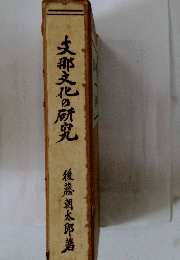 支那文化の研究
後藤朝太郎著